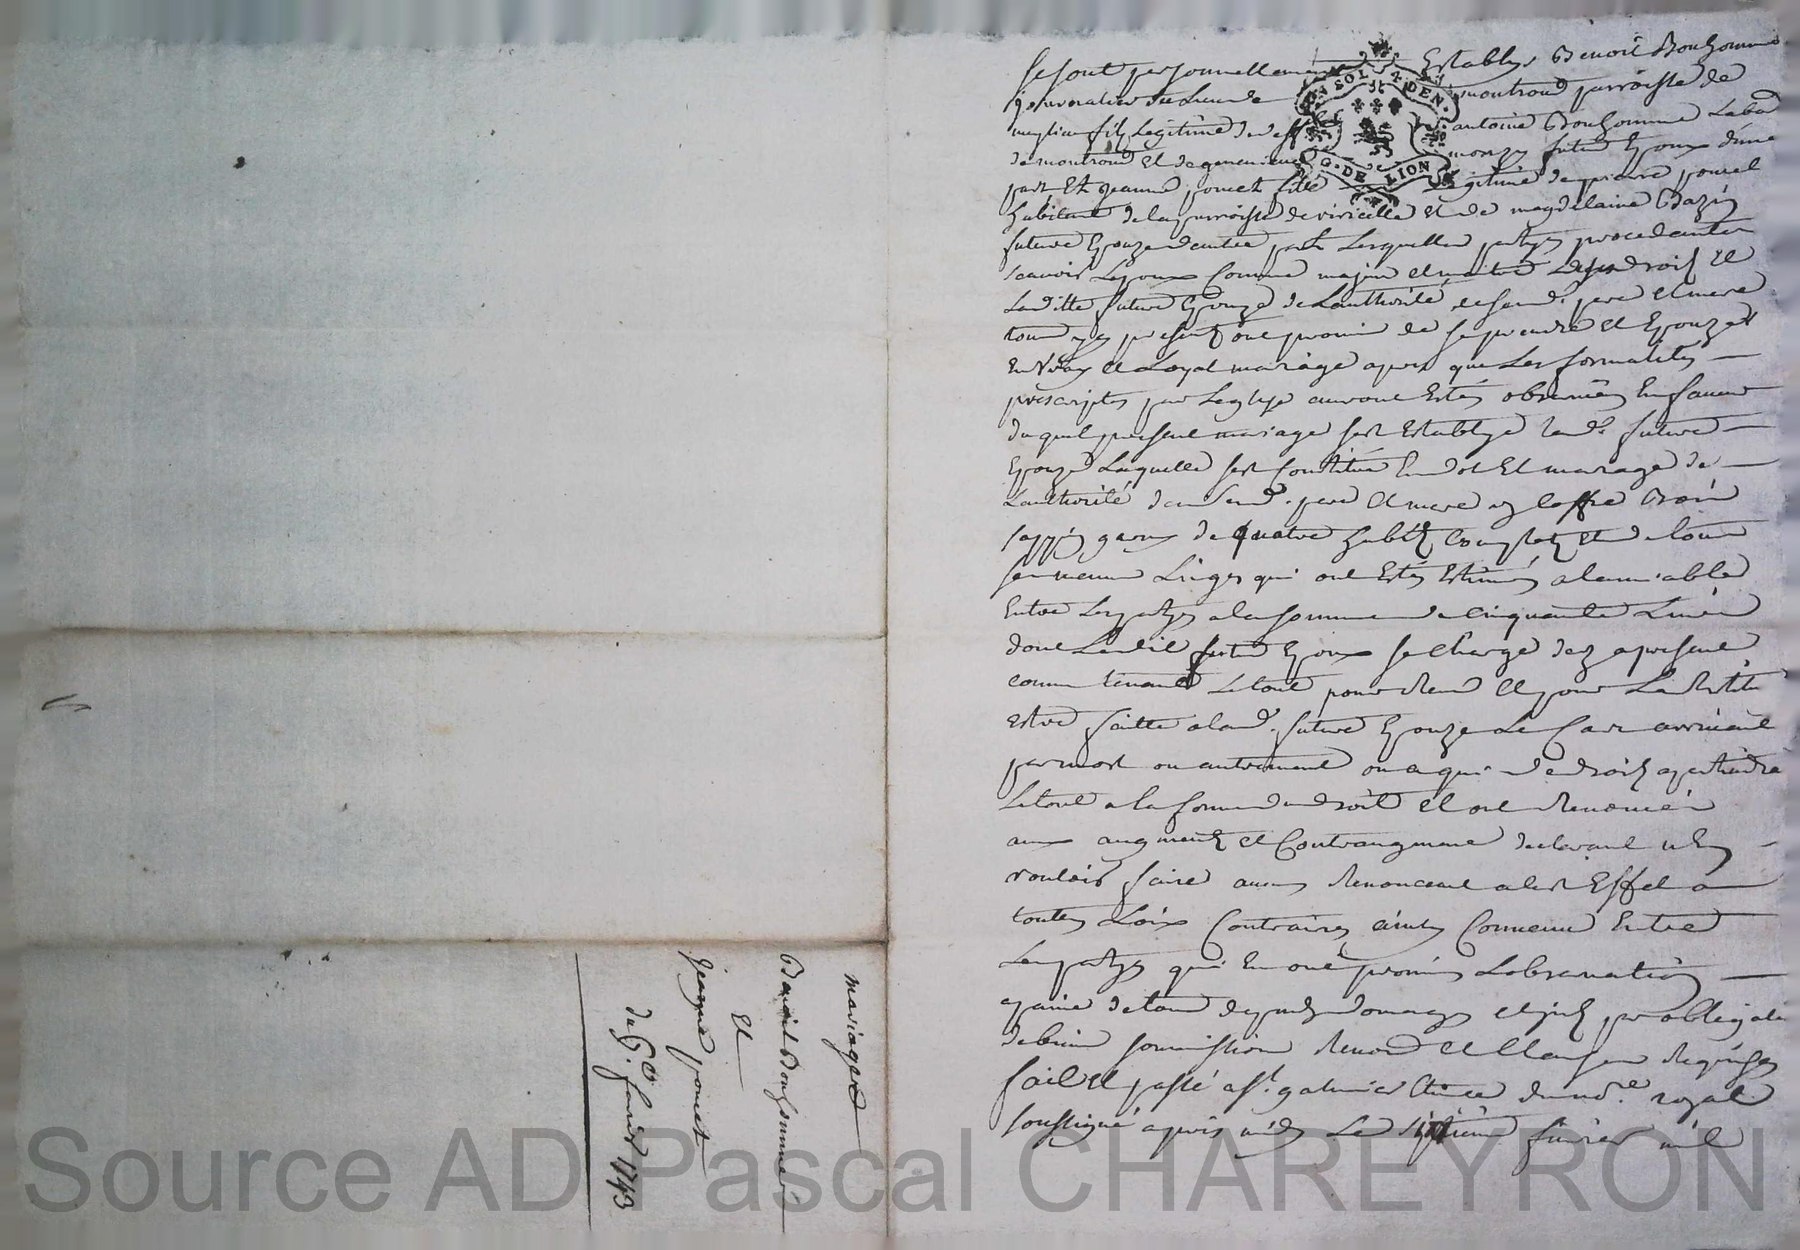 Se sont personnellement Establys Benoit Bonhomme
journalier du Lieu de montrond parroisse de
meylieu fils Legitime de deff antoine Bonhomme Lab
de montrond Et de genevieve future Epoux d'une
part Et Jeanne poncet fille Legitime de pierre poncet
habitant de la parroisse de viricelle Et de magdelaine Bazin
future Epouze dautre part Lesquelles partyes procedantes
scavoir Lepoux Comme majeur et maitre de ses droits Et
Laditte future Epouze de Lauthorité de send. pere et mere
tous icy presents ont promis de se prendre et Epouzer
En vray et Loyal mariage apres que Les formalités
prescriptes par Leglise auront Estés observées En faveur
duquel present mariage sest Establye lad. future
Epouze Laquelle sest Constitué En dot Et mariage de
Lauthorité de send. pere et mere un coffre Bois
sappin garny de quatre habits Complets Et de tous
ses menus Linges qui ont Estés Estimés a lamiable
Entre Les partyes a la somme de Cinquante Livres
dont Ledit futur Epoux se Charge des a present
comme tenant Le tout pour rendu Et pour La restitu
estre faitte a lad. future Epouze Le Cas arrivant
par mort ou autrement ou a qui de droit apartiendra
Le tout a la forme du droit Et ont Renoncés
aux augments et Contraugment declarant nen
vouloir faire aucun Renonceant a cest Effet a
touttes Loix Contraires ainsy Convenu Entre
Les partyes qui En ont promis Lobservation
a peine de tous depends domages et jnts par obligation
de biens soumission Renon et Clauses Requises
fait Et passé a St. galmier Etude du no.re royal
soussigné apres midy Le sixieme fevrier mil
mariage
Benoit Bonhomme
Et
Jeanne poncet
du 6e. fevrier 1743
SOL 4. DEN.
G. DE LION
Source AD Pascal CHAREYRON